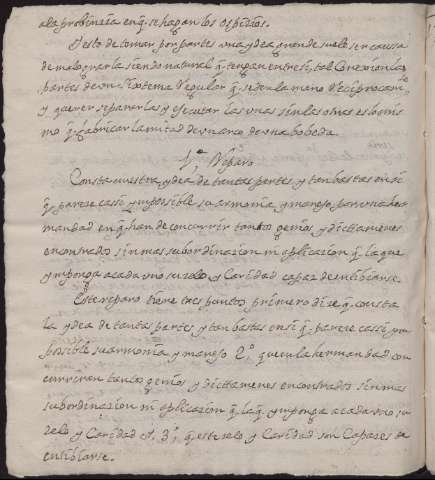 ala probinzia enq̃ se hagan los ospizios.
Y esto de tomar por partes una ydea grande suele ser causa
de malograrla siendo natural q̃ tengan entre si, tal Conexion las
partes de un Sistema Regular q̃ se den la mano Reciprocam.te
y querer separarlas y ejecutar las unas sin las otras es lo mis
mo q̃ fabricar la mitad de un arco de una bobeda.
1.º Reparo
Consta nuestra ydea de tantas partes y tan bastas en si
q̃ parese cassi ymposible su armonia y manejo por una her
mandad en q̃ han de concurrir tantos genios y dictamenes
encontrados sin mas subordinazion ni aplicazion q̃ la que
ymponga a cada uno su zelo y Caridad capaz de entibiarse.
Este reparo tiene tres puntos primero dize q̃ consta
la ydea de tantas partes y tan bastas en si q̃ parese cassi ym
posible su armonia y manejo 2.º que en la hermandad con
curriran tantos genios y dictamenes encontrados sin mas
subordinazion ni aplicazion q̃ la q̃ ymponga a cada uno su
zelo y Caridad 3.º q̃ este zelo y Caridad son Capazes de
entibiarse.